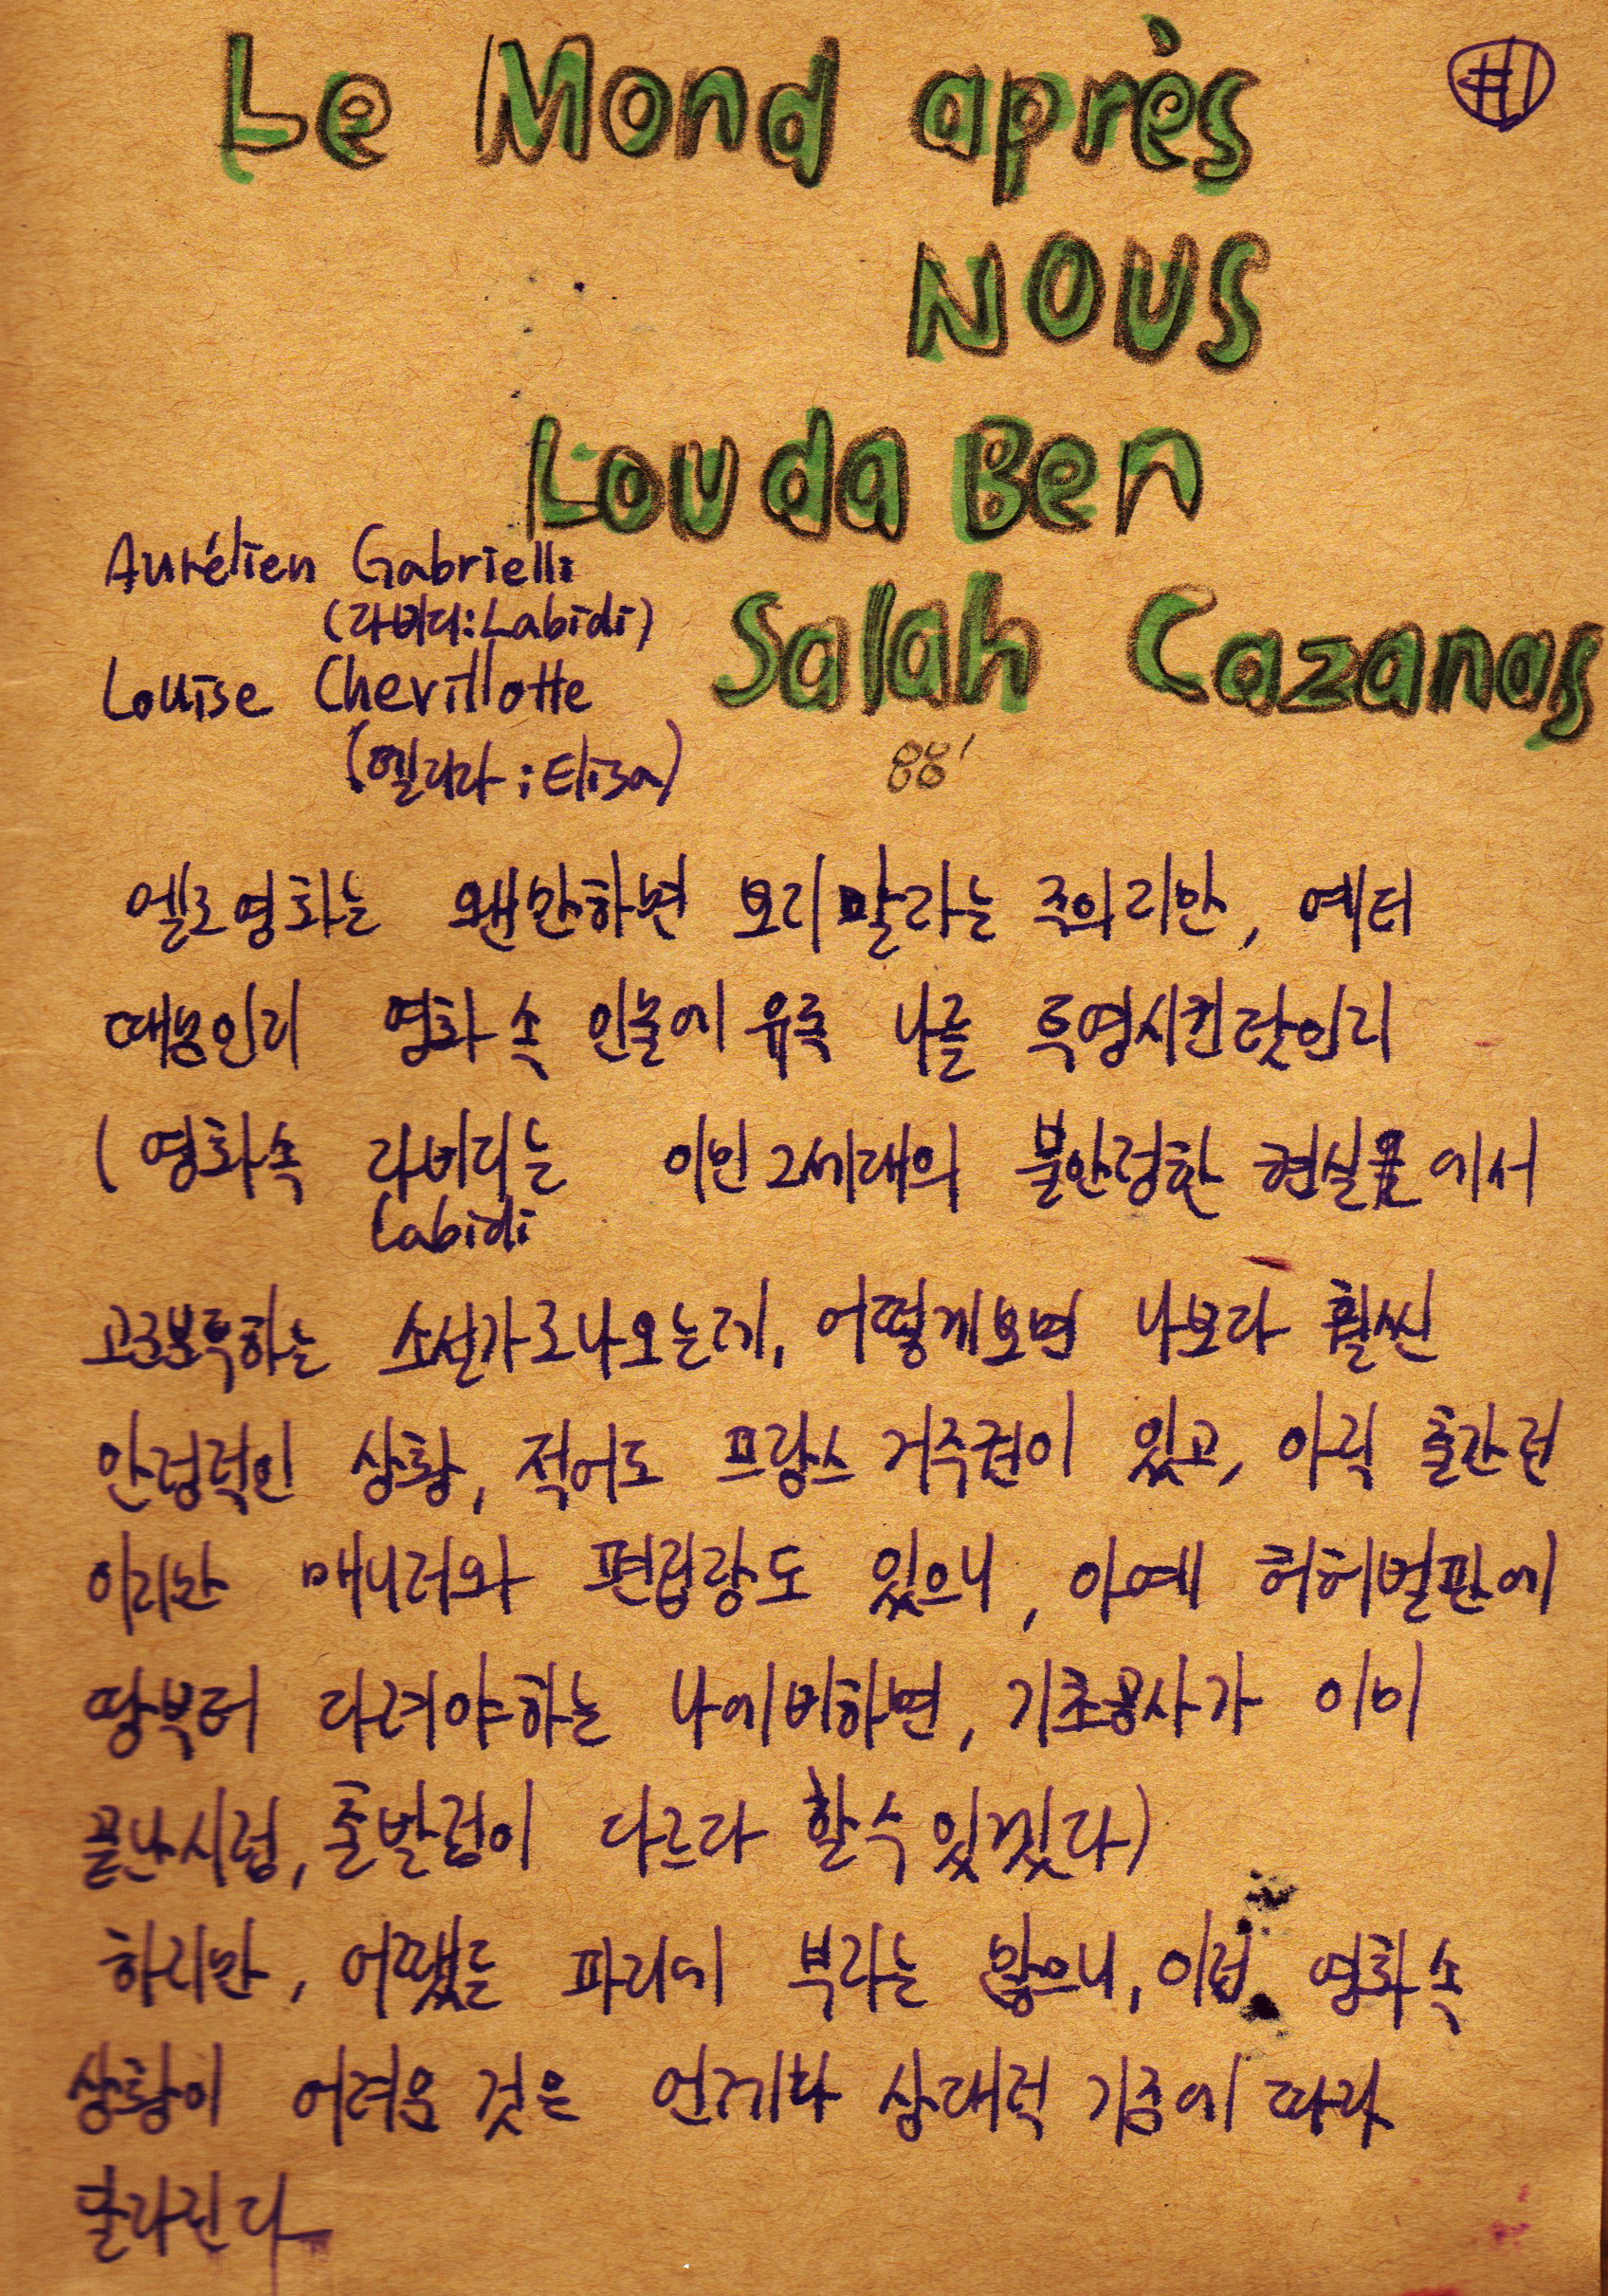 Le Mond après
#1
NOUS
Louda Ben
Aurélien Gabrielli
(라비디:Labidi)
Salah Cazanas
Louise Chevillotte
(엘리자;Elisa)
88'
멜로영화는 왠만하면 보지말자는 주의지만, 예터
때문인지 영화 속 인물에 유독 나를 투영시킨탓인지
(영화속 라비디는 이민2세대의 불안정한 현실 에서
Labidi
고군분투하는 소설가로나오는데, 어떻게보면 나보다 훨씬
안정적인 상황, 적어도 프랑스 거주권이 있고, 아직 출간전
이지만 매니저와 편집장도 있으니, 아예 허허벌판에
땅부터 다려야하는 나에비하면, 기초공사가 이미
끝난시점, 출발점이 다르다 할수있겠다)
하지만, 어쨌든 파리에 부자는 많으니, 이점 영화속
상황이 어려운 것은 언제나 상대적 기준에 따라
달라진다